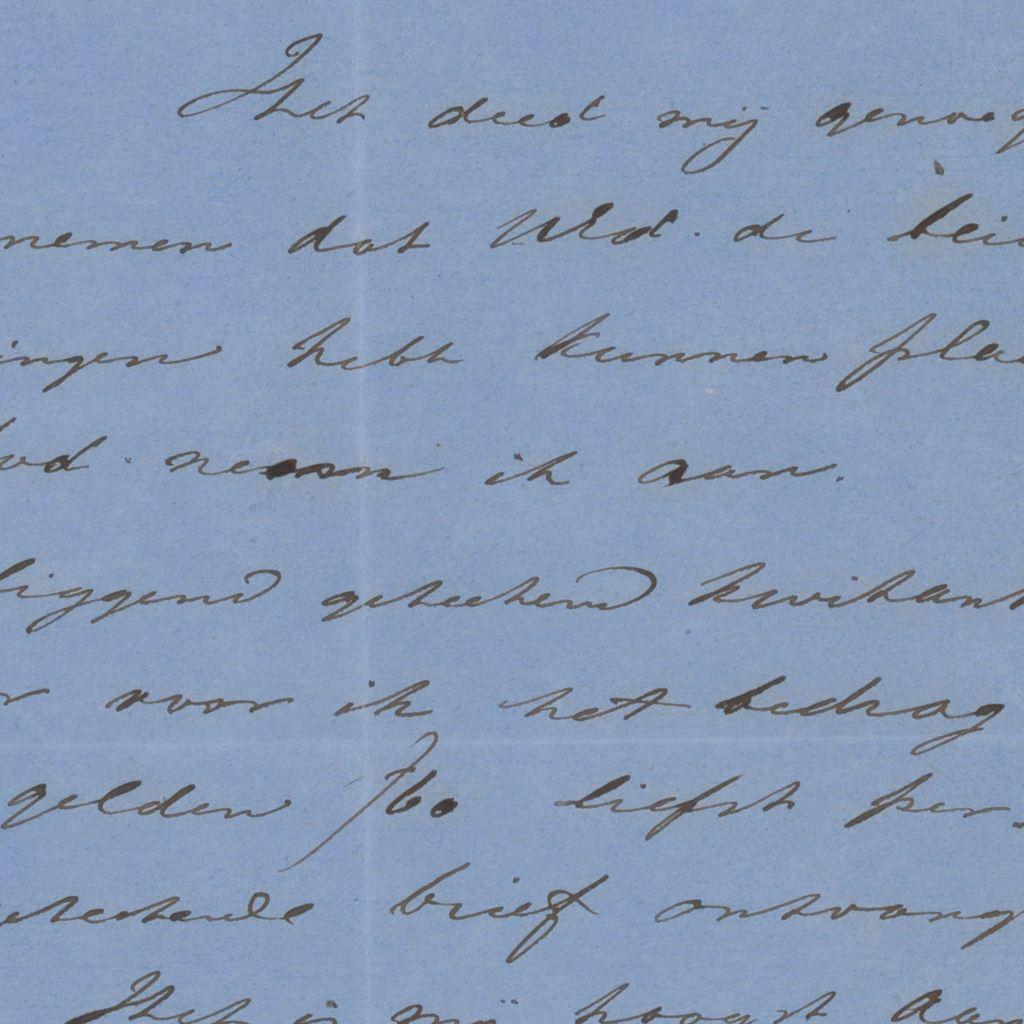 Het deed mij genoeg
nemen dat UEd. de bei
ingen hebt kunnen plaa
bod neem ik aan.
liggend geteekend kwitant
r voor ik het bedrag
gelden f 60 liefst per
geteekende brief ontvang
Het is mij hoogst aan